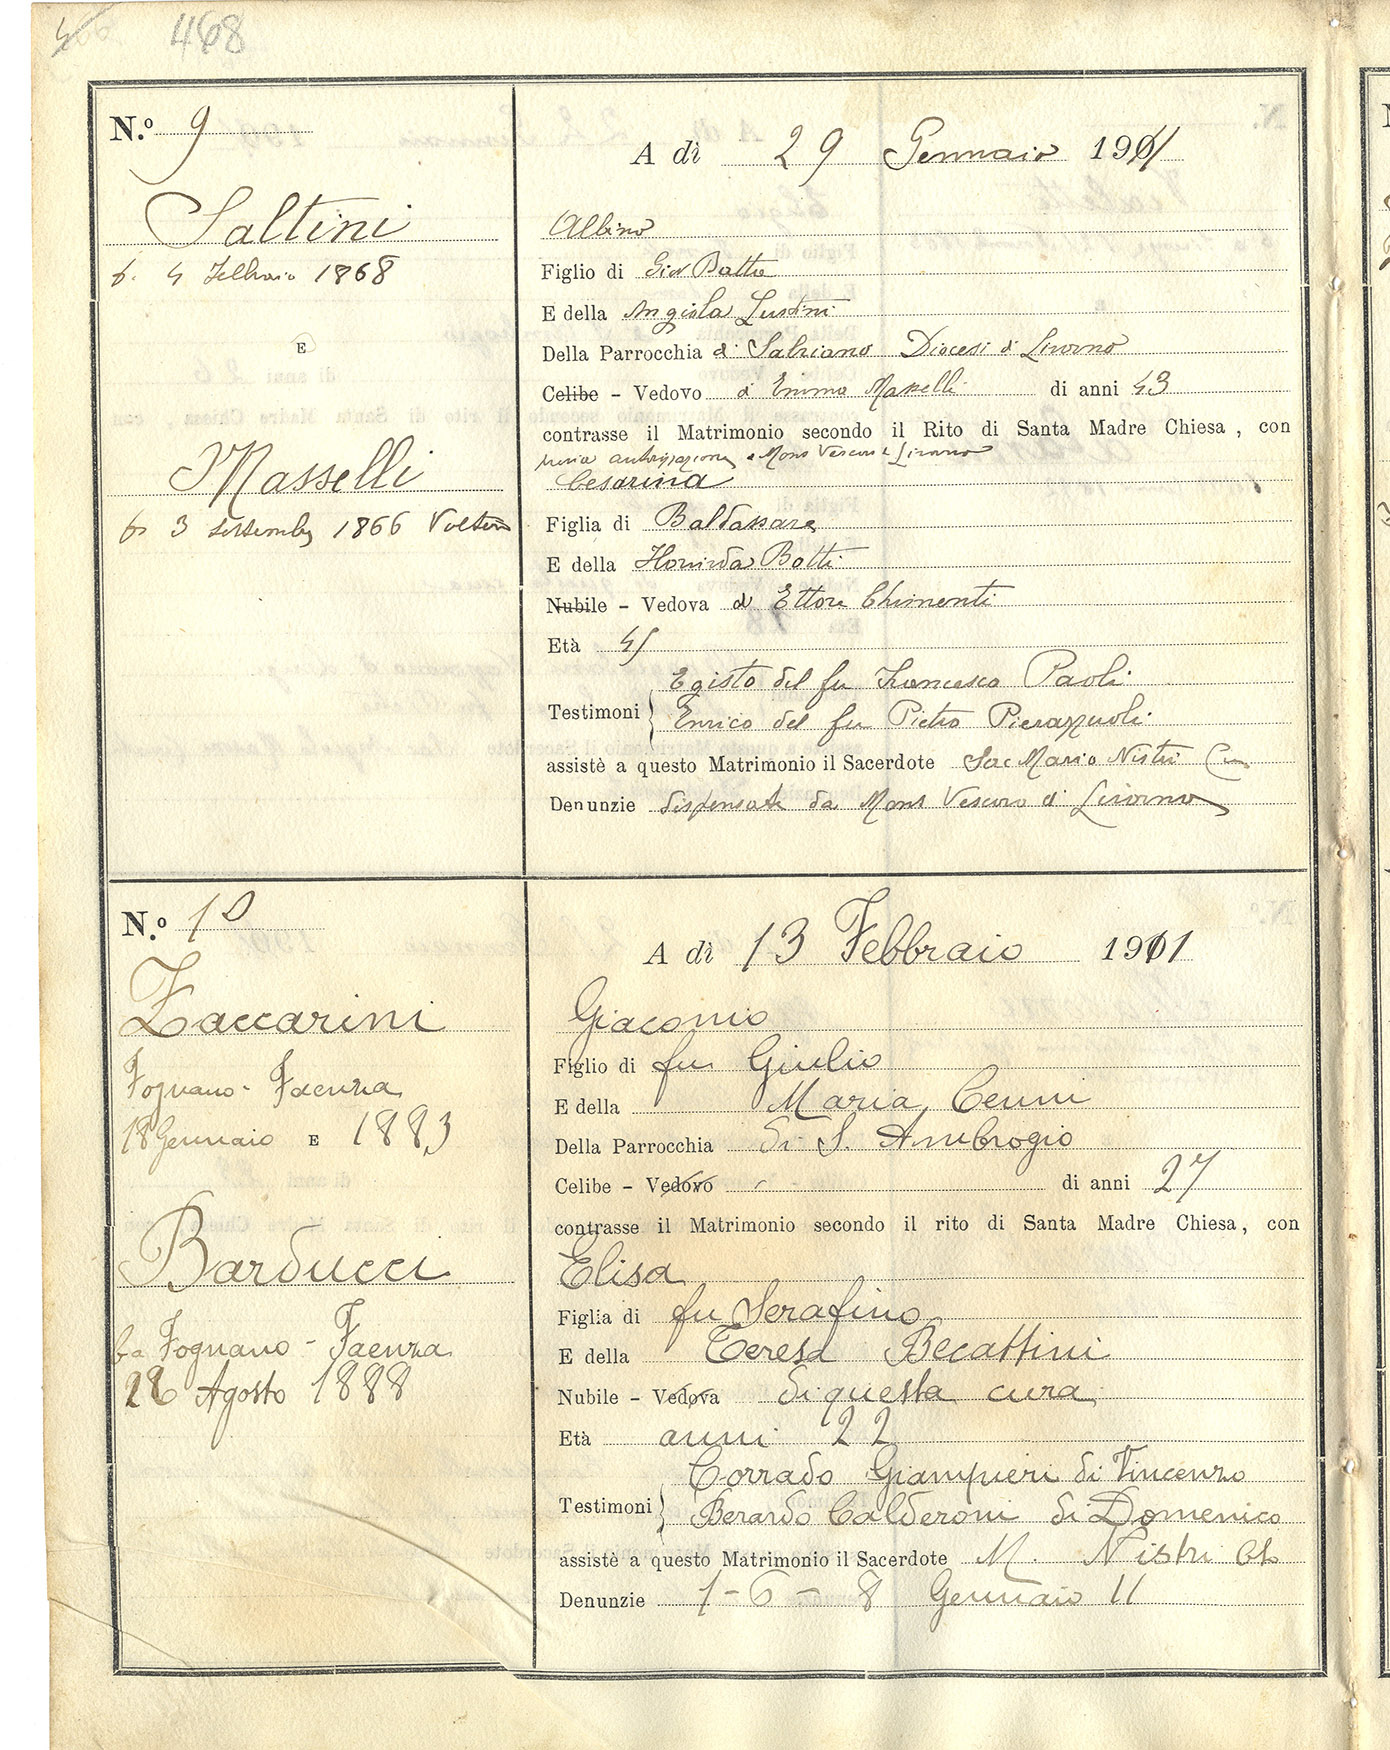 468
N.º 9
A dì 29 Gennaio 1911
Saltini
b. 4 Febbraio 1868
E
Masselli
b. 3 settembre 1866 Volterra
Albino
Figlio di Gio Batta
E della Angiola Lustrini
Della Parrocchia di Salviano Diocesi di Livorno
Celibe - Vedovo di Emma Masselli di anni 43
contrasse il Matrimonio secondo il Rito di Santa Madre Chiesa, con
previa autorizzazione di Mons Vescovo di Livorno
Cesarina
Figlia di Baldassare
E della Florinda Botti
Nubile - Vedova di Ettore Chimenti
Età 45
Egisto del fu Francesco Paoli
Testimoni
Enrico del fu Pietro Pierazzuoli
assistè a questo Matrimonio il Sacerdote Sac Mario Nistri
Denunzie dispensate da Mons Vescovo di Livorno
N.º 10
A dì 13 Febbraio 1911
Zaccarini
Fognano - Faenza
18 Gennaio E 1883
Barducci
ba Fognano - Faenza
28 Agosto 1888
Giacomo
Figlio di fu Giulio
E della Maria Cenni
Della Parrocchia di S. Ambrogio
Celibe - Vedovo di anni 27
contrasse il Matrimonio secondo il rito di Santa Madre Chiesa, con
Elisa
Figlia di fu Serafino
E della Teresa Becattini
Nubile - Vedova di questa cura
Età anni 22
Corrado Giampieri di Vincenzo
Testimoni
Berardo Calderoni di Domenico
assistè a questo Matrimonio il Sacerdote M. Nistri
Denunzie 1 - 6 - 8 Gennaio 11